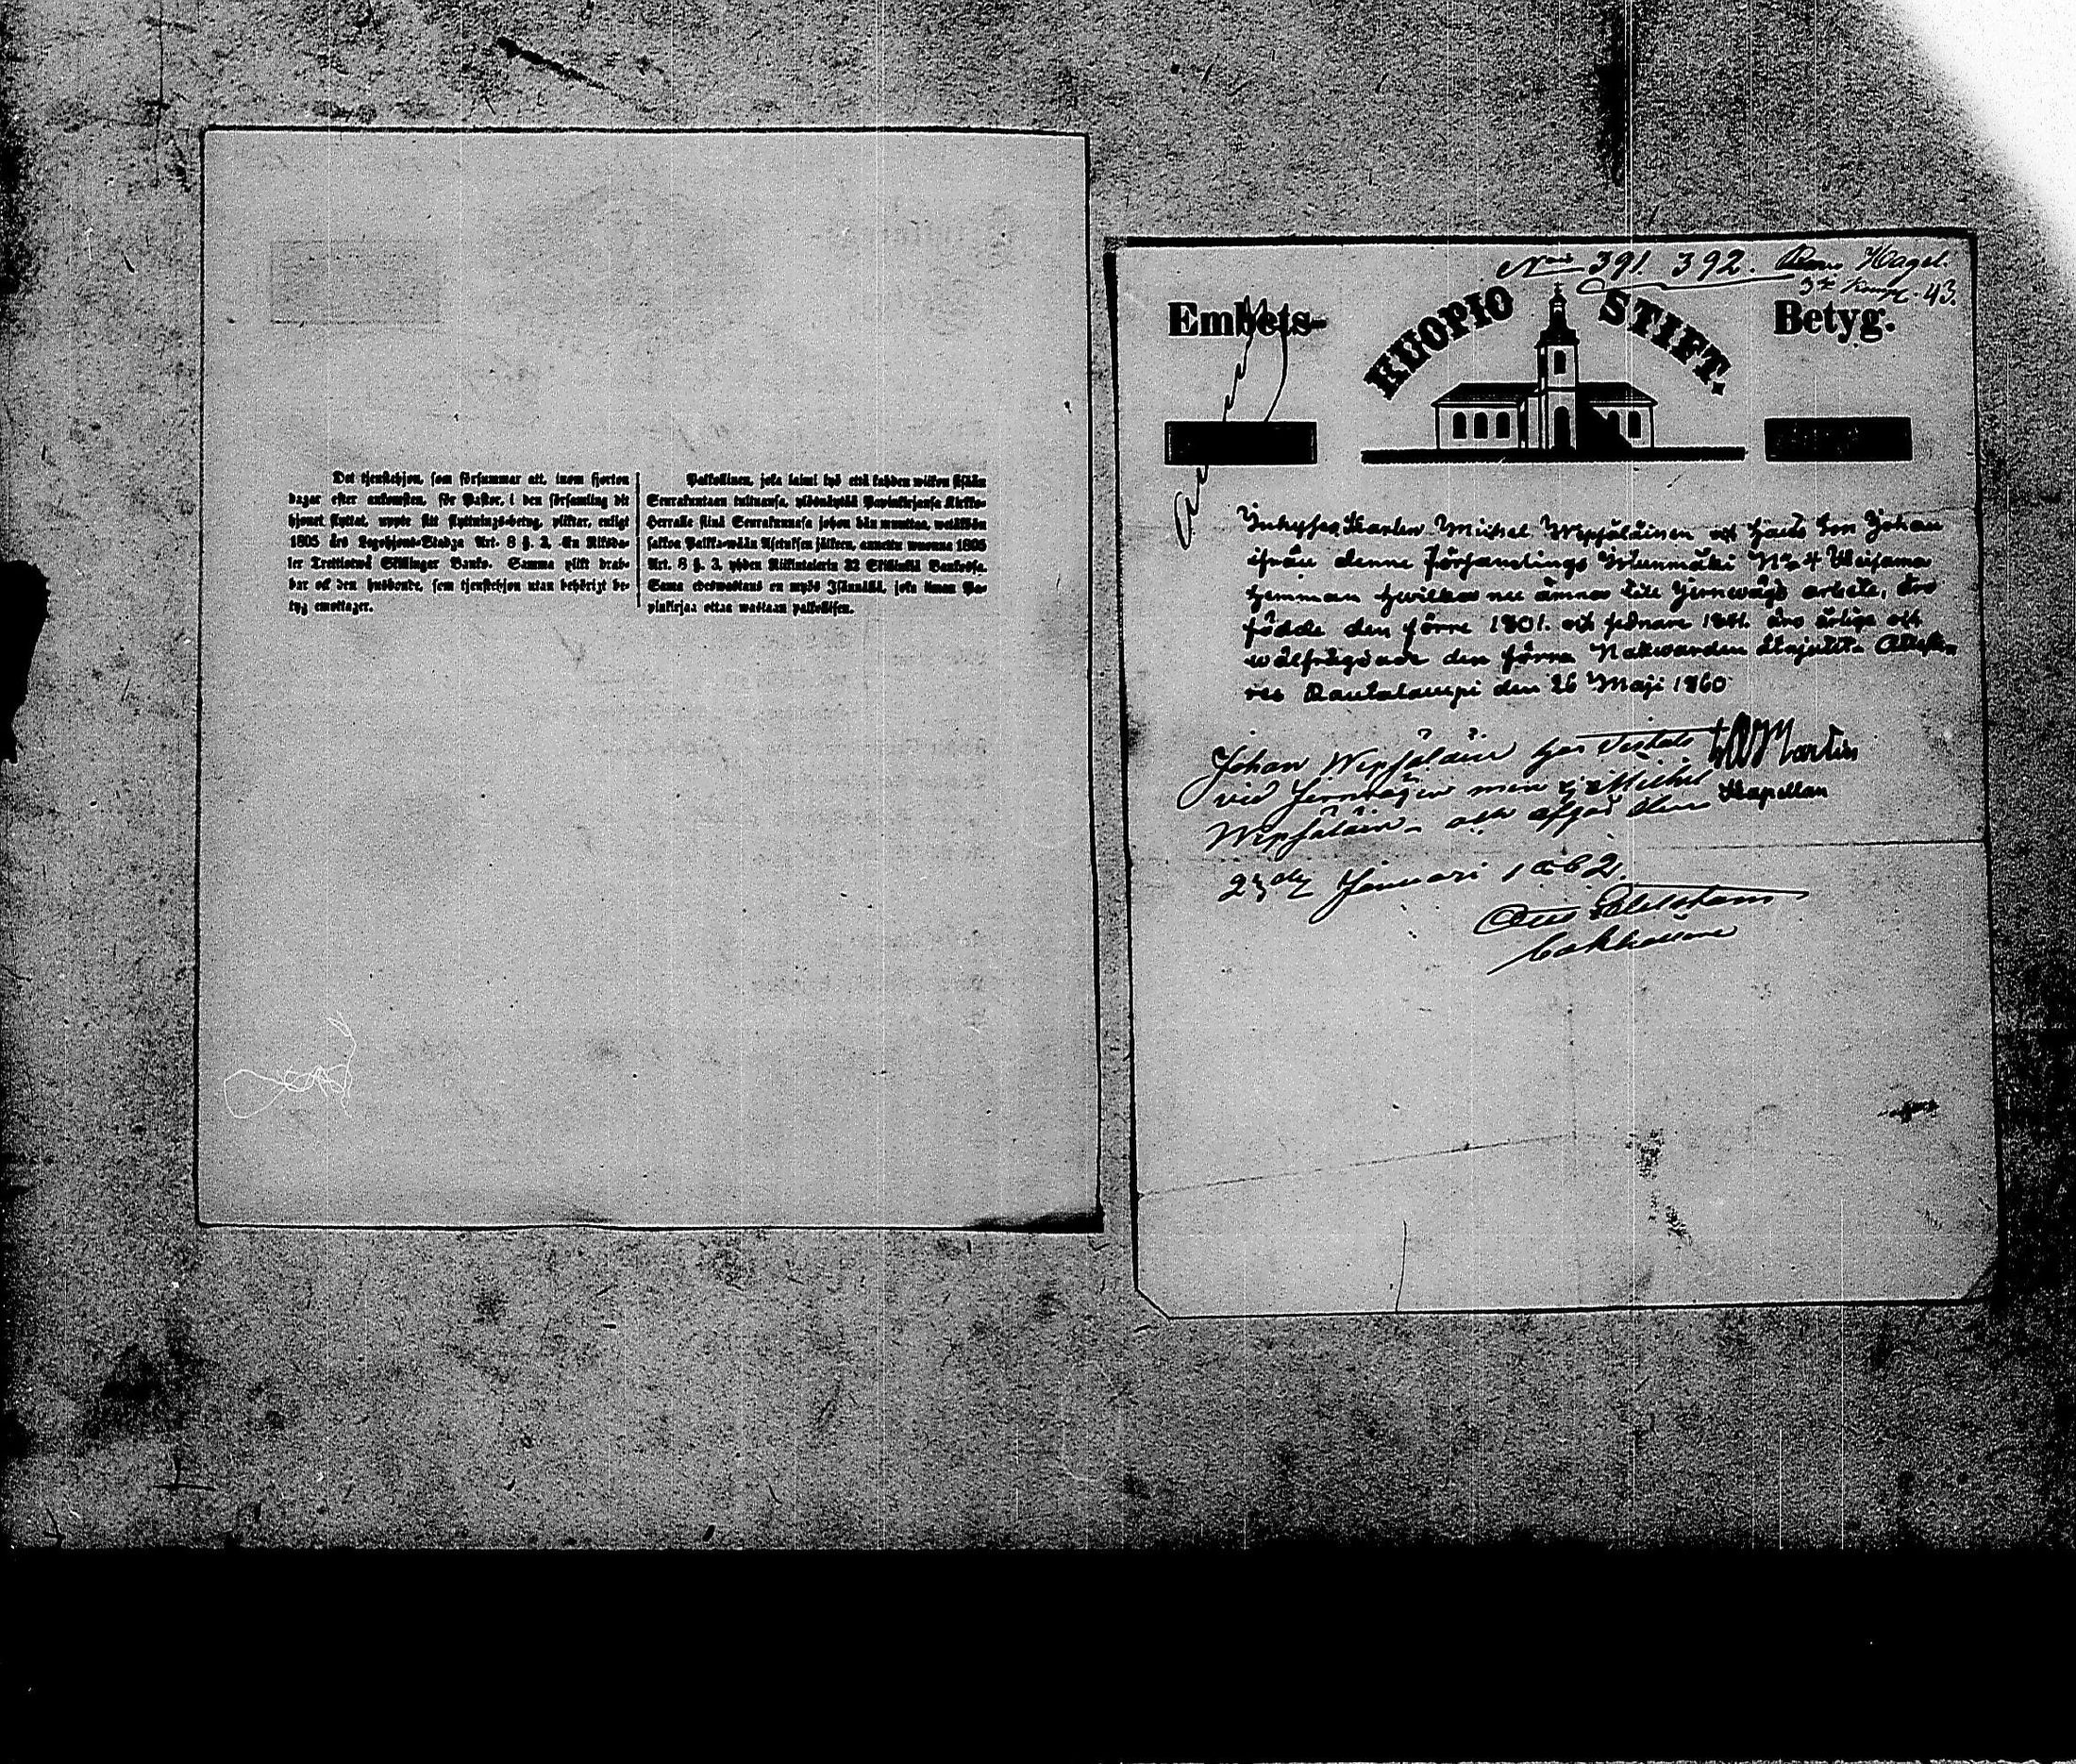 Det tjenstehjon, som försummar att, inom fjorton
dagar efter ankomsten, för Pastor, i den församling dit
hjonet flyttat, uppte sitt flyttnings-betyg, pliktar, enligt
1805 års Legohjons-Stadga Art. 8 §. 3. En Riksda-
ler Trettiotwå Skillinger Banko. Samma plikt drab-
bar ock den husbonde, som tjenstehjon utan behörigt be-
tyg emottager.
Palkollinen, joka laimi lyö että kahden wiikon sisään
Seurakuntaan tultuansa, ylösnäyttää Papinkirjansa Kirkko-
Herralle siinä Seurakunnasa johon hän muuttaa, wetäköön
sakkoa Palkka-wään Asetuksen jälkeen, annettu wuonna 1805
Art. 8 §. 3. yhden Riikintalarin 32 Skillinkiä Bankossa.
Sama edeswastaus on myös Isännällä, joka ilman Pa-
pinkirjaa ottaa wastaan palkollisen.
Nris 391. 392. Hagel.
3 Komp. 43.
Embets- KUOPIO STIFT. Betyg.
Inhyses Karlen Michel Wepsäläinen och hans Son Johan
ifrån denne församlings Istunmäki No 4 Waisama
hemman hwilka nu ämna till Jernwägs arbete, äro
födde den förre 1801. och sednare 1841. äro ärlige och
wälfrägdade den förra Nattwarden åtnjutit. Atteste-
ras Rautalampi den 26 Maji 1860
Martin
Kapellan
Johan Wepsäläin har vistats
vid Jernvägen men ej Michel
Wepsäläin och afgår denne
23dje Januari 1862.
Otto